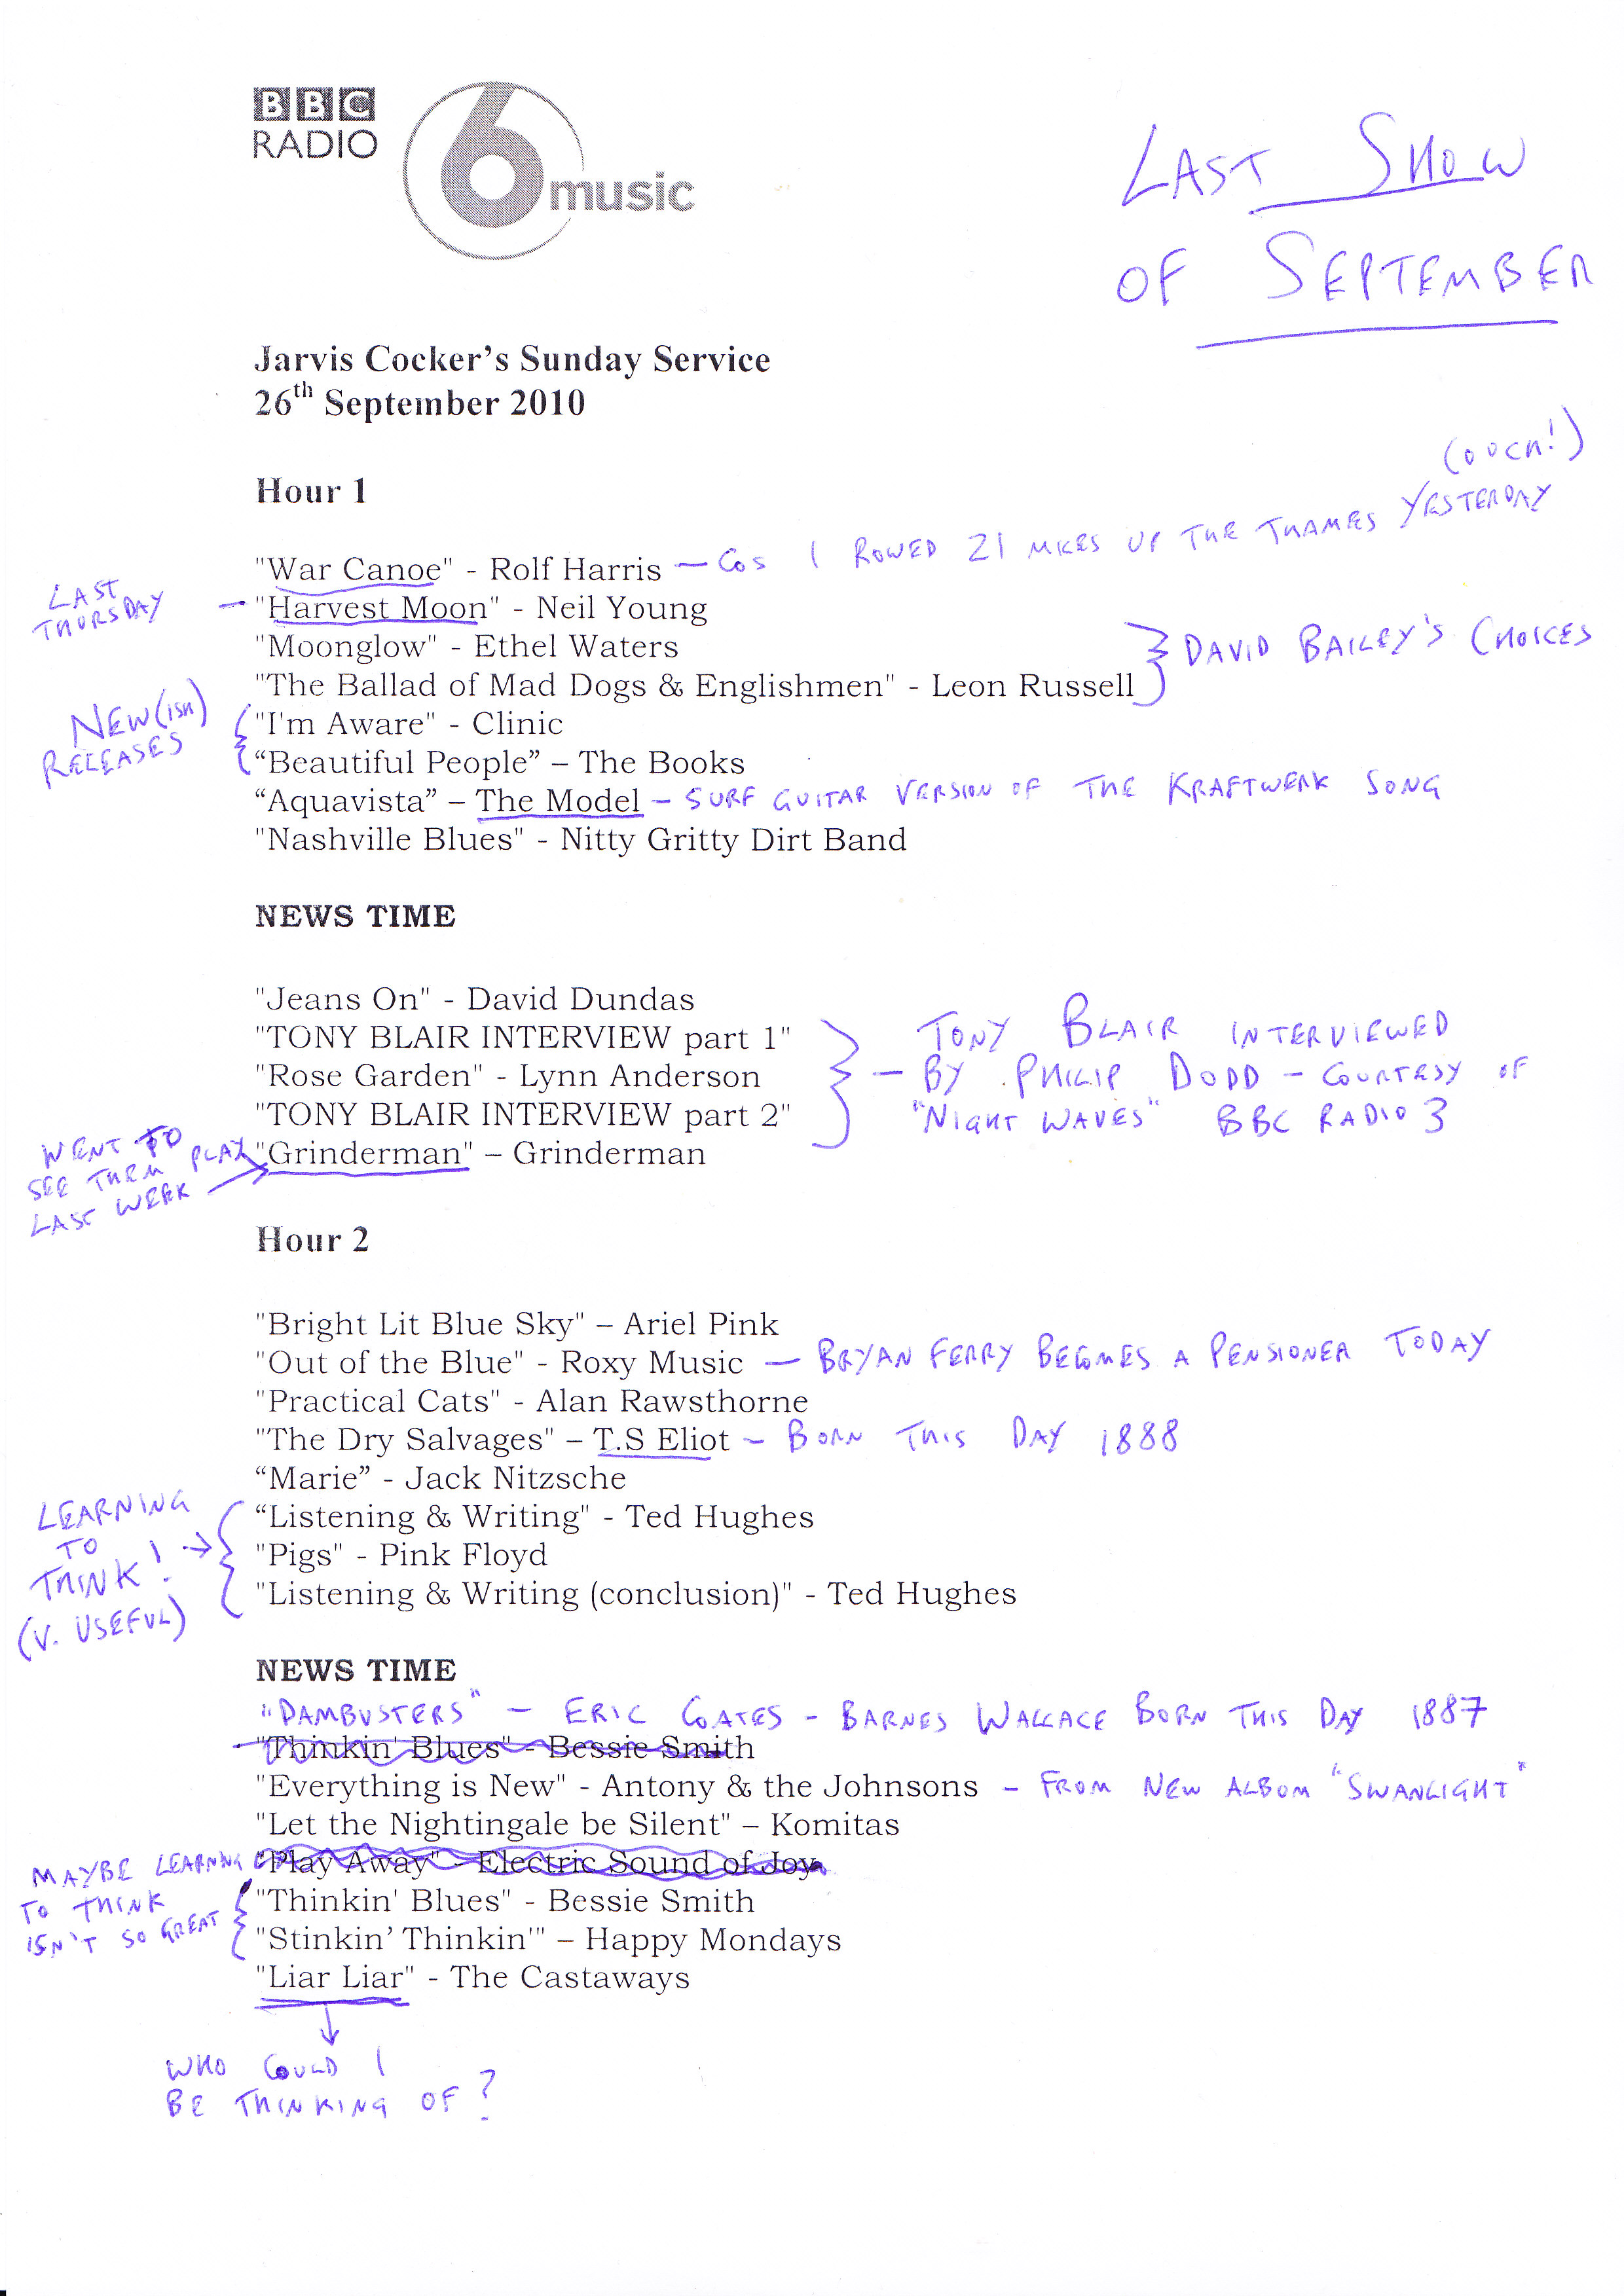 BBC
RADIO
6 music
LAST SHOW
OF SEPTEMBER
Jarvis Cocker's Sunday Service
26th September 2010
Hour 1
(OOCH!)
"War Canoe" - Rolf Harris — COS I ROWED 21 MILES UP THE THAMES YESTERDAY
LAST
THURSDAY
— "Harvest Moon" - Neil Young
"Moonglow" - Ethel Waters
"The Ballad of Mad Dogs & Englishmen" - Leon Russell
} DAVID BAILEY'S CHOICES
NEW(ISH)
RELEASES
"I'm Aware" - Clinic
“Beautiful People” – The Books
“Aquavista” – The Model – SURF GUITAR VERSION OF THE KRAFTWERK SONG
"Nashville Blues" - Nitty Gritty Dirt Band
NEWS TIME
"Jeans On" - David Dundas
"TONY BLAIR INTERVIEW part 1"
"Rose Garden" - Lynn Anderson
"TONY BLAIR INTERVIEW part 2"
} – TONY BLAIR INTERVIEWED
BY PHILIP DODD – COURTESY OF
"NIGHT WAVES" BBC RADIO 3
WENT TO
SEE THEM PLAY
LAST WEEK →
"Grinderman" – Grinderman
Hour 2
"Bright Lit Blue Sky" – Ariel Pink
"Out of the Blue" - Roxy Music — BRYAN FERRY BECOMES A PENSIONER TODAY
"Practical Cats" - Alan Rawsthorne
"The Dry Salvages" – T.S Eliot – BORN THIS DAY 1888
“Marie” - Jack Nitzsche
LEARNING
TO
THINK! →
(V. USEFUL)
“Listening & Writing" - Ted Hughes
"Pigs" - Pink Floyd
"Listening & Writing (conclusion)" - Ted Hughes
NEWS TIME
"DAMBUSTERS" – ERIC COATES – BARNES WALLACE BORN THIS DAY 1887
"Thinkin' Blues" - Bessie Smith
"Everything is New" - Antony & the Johnsons – FROM NEW ALBUM "SWANLIGHT"
"Let the Nightingale be Silent" – Komitas
"Play Away" - Electric Sound of Joy
MAYBE LEARNING
TO THINK
ISN'T SO GREAT
"Thinkin' Blues" - Bessie Smith
"Stinkin’ Thinkin'" – Happy Mondays
"Liar Liar" - The Castaways
WHO COULD I
BE THINKING OF?